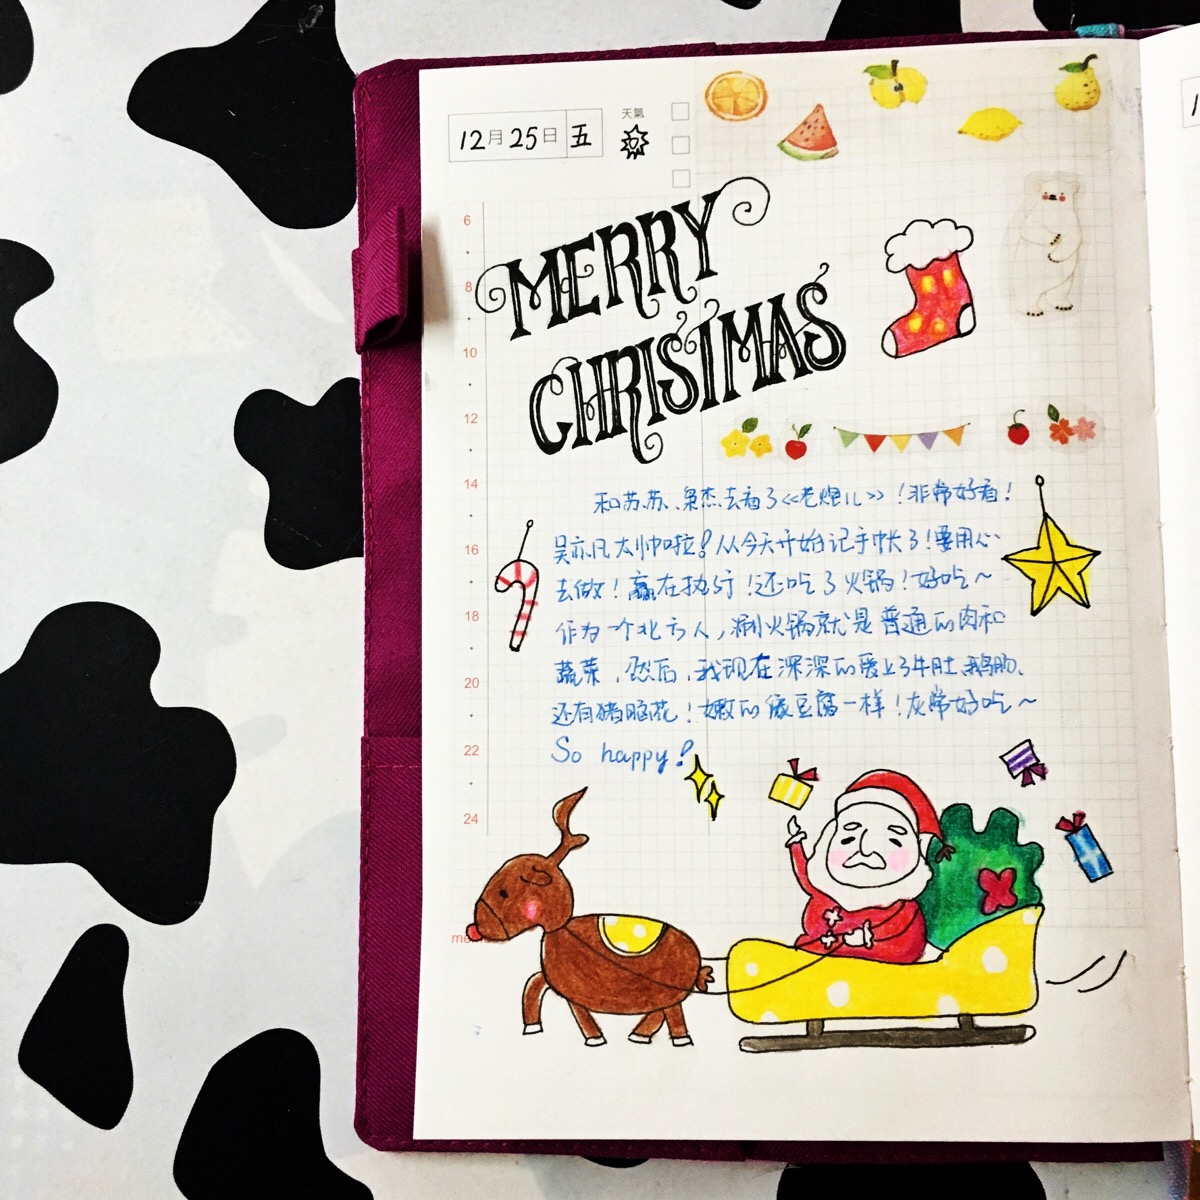 12月25日 五
天氣
MERRY
CHRISTMAS
6
8
10
12
14
16
18
20
22
24
和苏苏、枭杰去看了《老炮儿》！非常好看！
吴亦凡太帅啦！从今天开始记手帐了！要用心
去做！赢在执行！还吃了火锅！好吃～
作为一个北方人，涮火锅就是普通的肉和
蔬菜，然后，我现在深深的爱上了牛肚、鹅肠、
还有猪脑花！嫩的像豆腐一样！灰常好吃～
So happy！